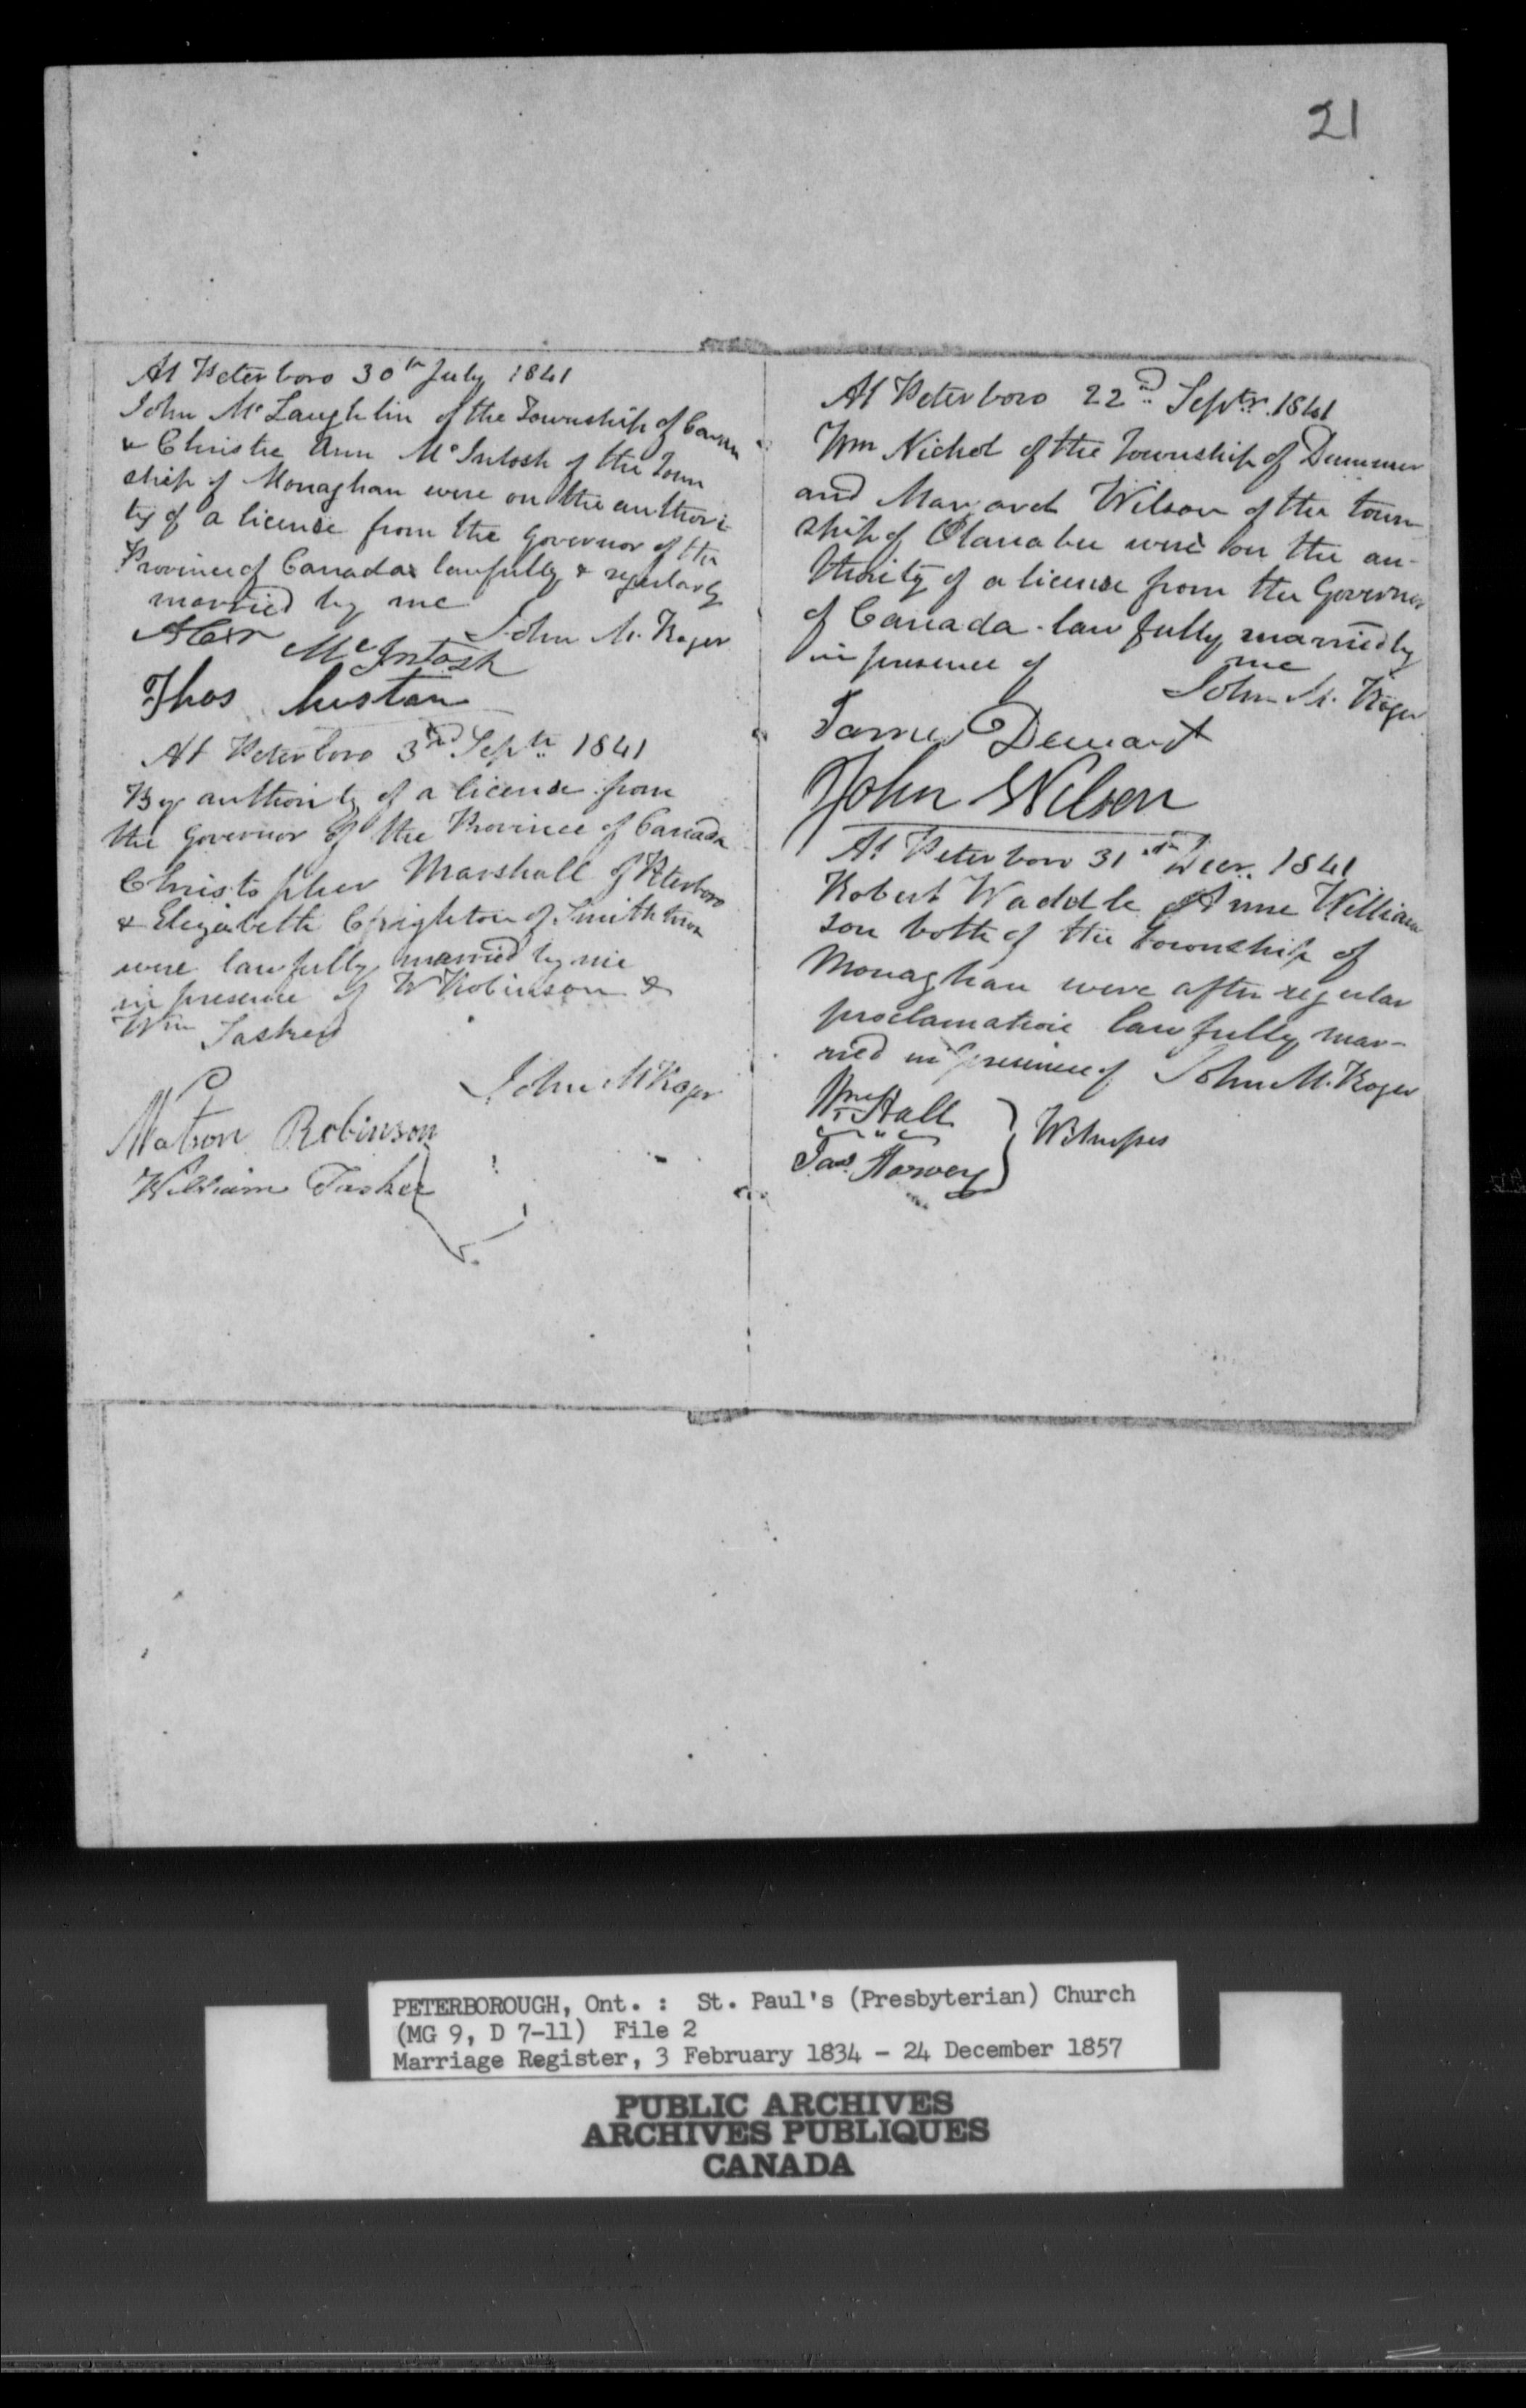 21
At Peterboro 30th July 1841
John McLaughlin of the Township of Cavan
& Christie Ann McIntosh of the Town
ship of Monaghan were on the authori
ty of a license from the Governor of the
Province of Canada lawfully & regularly
married by me
John M. Roger
Alexr McIntosh
Thos Austan
At Peterboro 3rd Septr 1841
By authority of a license from
the Governor of the Province of Canada
Christopher Marshall of Peterboro
& Elizabeth Crighton of Smithtown
were lawfully married by me
in presence of W Robinson &
Wm Tasker
John M Roger
Watson Robinson
William Tasker
At Peterboro 22nd Septr. 1841
Wm Nichol of the Township of Dummer
and Margaret Wilson of the town
ship of Otanabee were on the au-
thority of a license from the Governor
of Canada lawfully married by
me
in presence of
John M. Roger
James
John Wilson
At Peterboro 31st Decr. 1841
Robert Waddle Anne William
son both of the Township of
Monaghan were after regular
proclamation lawfully mar-
ried in presence of John M. Roger
Wm Hall
Jas. Harvey
Witnesses
PETERBOROUGH, Ont. : St. Paul's (Presbyterian) Church
(MG 9, D 7-11) File 2
Marriage Register, 3 February 1834 - 24 December 1857
PUBLIC ARCHIVES
ARCHIVES PUBLIQUES
CANADA